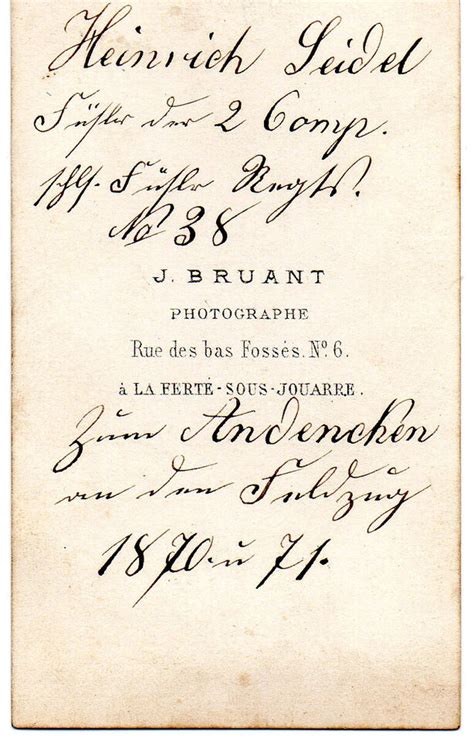 Heinrich Seidel
Füslr der 2 Comp.
schls. Füslr Regts.
No 38
J. BRUANT
PHOTOGRAPHE
Rue des bas Fossés. No. 6.
à LA FERTÉ-SOUS-JOUARRE.
Zum Andencken
an den Feldzug
1870 u 71.